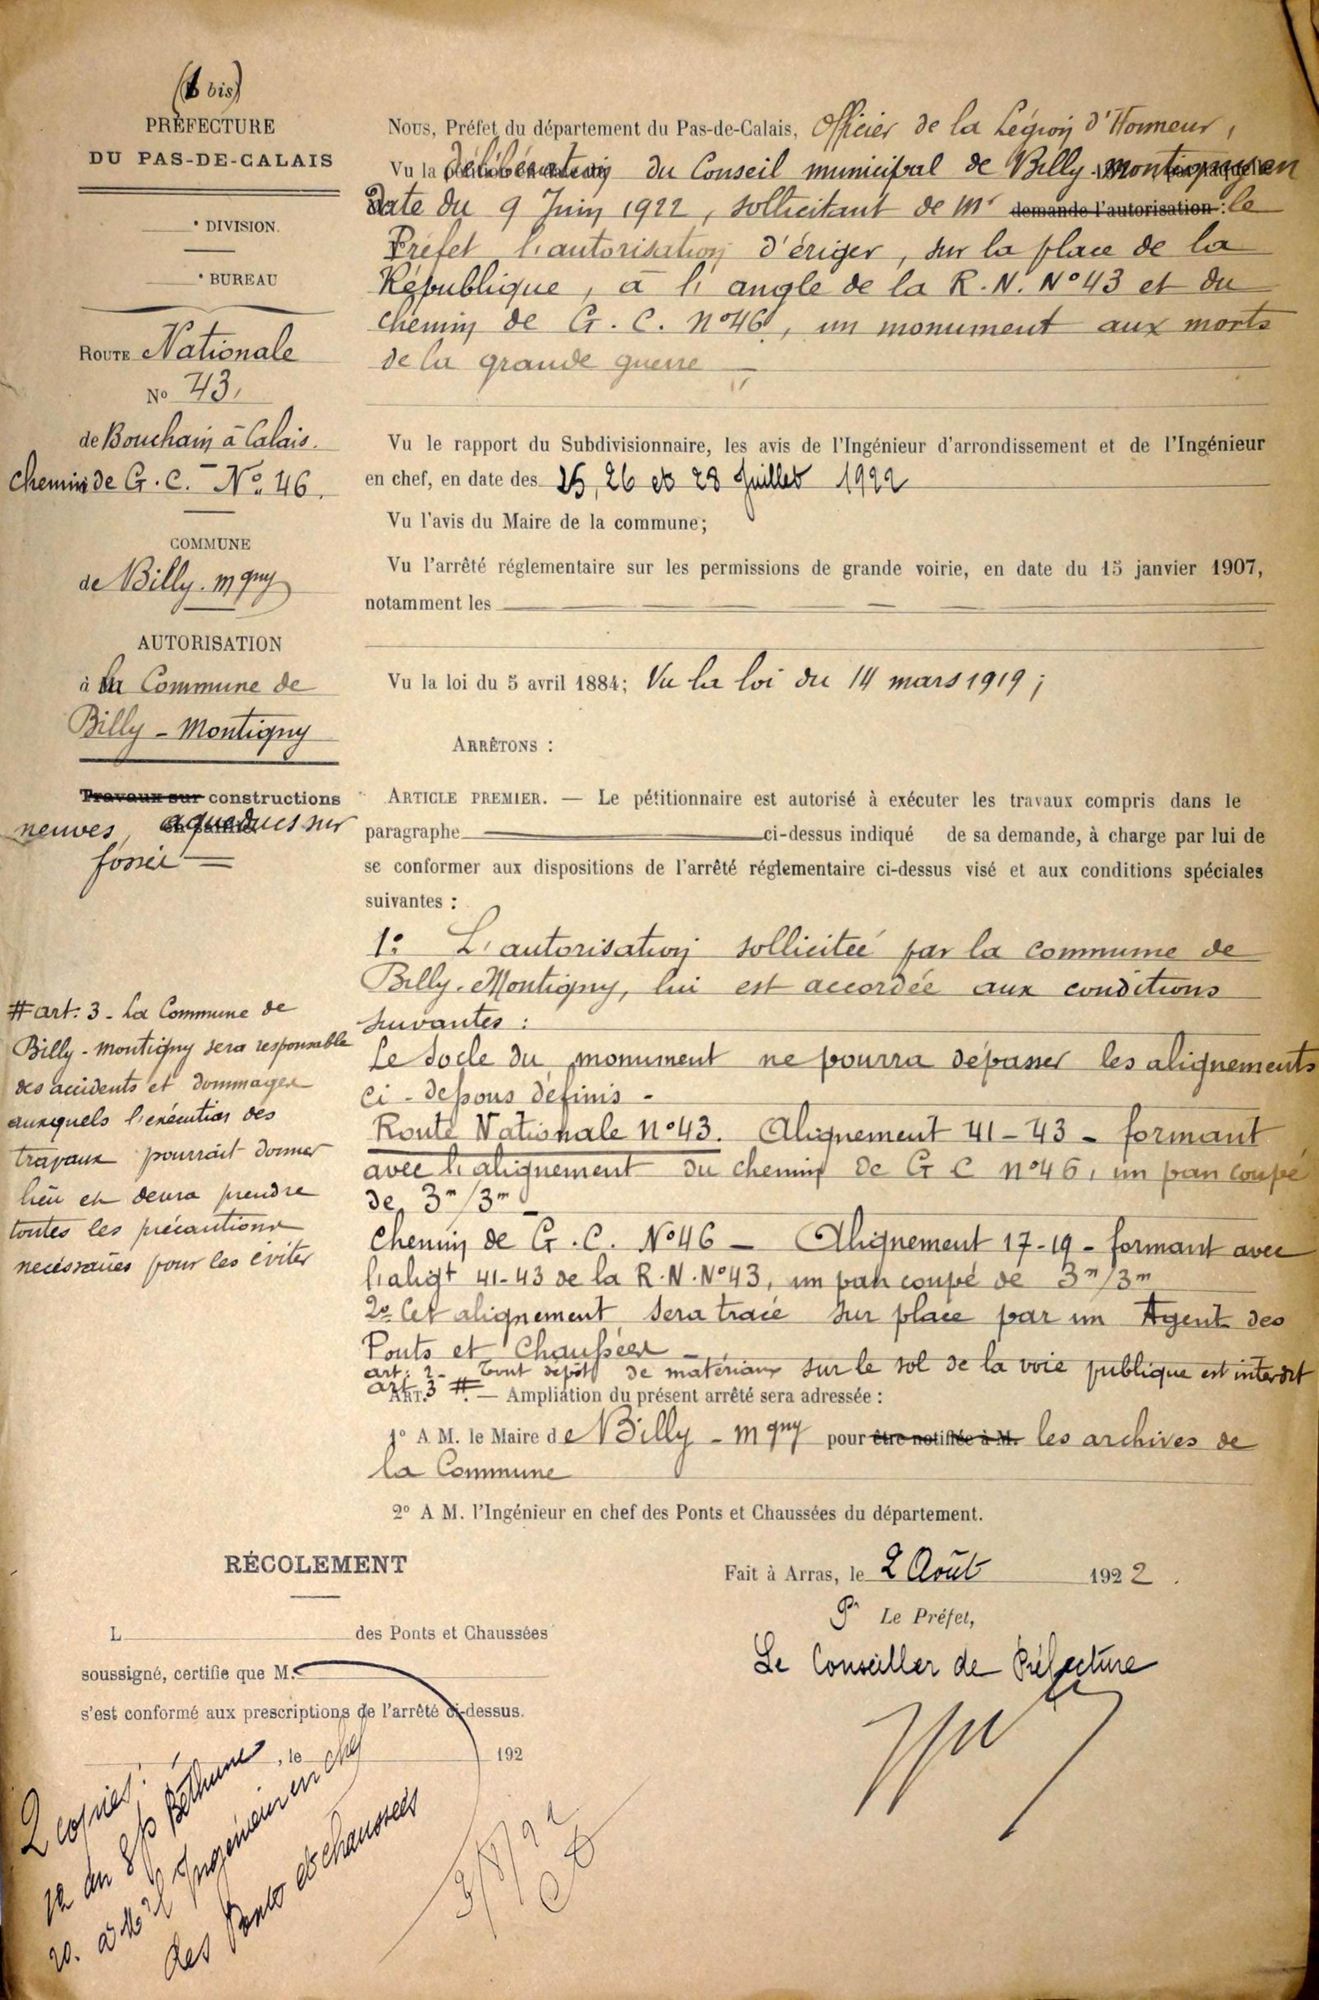 (1 bis)
PRÉFECTURE
DU PAS-DE-CALAIS
e DIVISION.
e BUREAU
ROUTE Nationale
No 43,
de Bouchain à Calais.
chemin de G. C. - No. 46.
COMMUNE
de Billy. mgny
AUTORISATION
à la Commune de
Billy - Montigny
Travaux sur constructions
neuves, aqueducs sur
fossée
# art: 3 - La Commune de
Billy - Montigny sera responsable
des accidents et dommages
auxquels l'exécution des
travaux pourrait donner
lieu et devra prendre
toutes les précautions
necéssaires pour les éviter
Nous, Préfet du département du Pas-de-Calais, Officier de la Légion d'Honneur,
Vu la délibération du Conseil municipal de Billy-Montigny en
Date du 9 Juin 1922, sollicitant de Mr demande l'autorisation : le
Préfet l'autorisation d'ériger, sur la place de la
République, à l'angle de la R. N. No 43 et du
chemin de G. C. no 46, un monument aux morts
de la grande guerre
Vu le rapport du Subdivisionnaire, les avis de l'Ingénieur d'arrondissement et de l'Ingénieur
en chef, en date des 25, 26 et 28 Juillet 1922
Vu l'avis du Maire de la commune;
Vu l'arrêté réglementaire sur les permissions de grande voirie, en date du 15 janvier 1907,
notamment les
Vu la loi du 5 avril 1884; Vu la loi du 14 mars 1919;
ARRÊTONS :
ARTICLE PREMIER. — Le pétitionnaire est autorisé à exécuter les travaux compris dans le
paragraphe ci-dessus indiqué de sa demande, à charge par lui de
se conformer aux dispositions de l'arrêté réglementaire ci-dessus visé et aux conditions spéciales
suivantes :
1o. L'autorisation sollicitée par la commune de
Billy-Montigny, lui est accordée aux conditions
suivantes :
Le Socle du monument ne pourra dépasser les alignements
ci - dessous définis -
Route Nationale no 43. Alignement 41-43 - formant
avec l'alignement du chemin de G C no 46, un pan coupé
de 3m/3m
Chemin de G. C. No 46 - Alignement 17-19 - formant avec
l'aligt 41-43 de la R. N. No 43, un pan coupé de 3m/3m
2o Cet alignement sera tracé sur place par un Agent des
Ponts et Chaussées -
art: 2 - Tout dépôt de matériaux sur le sol de la voie publique est interdit
art 3 #
ART. — Ampliation du présent arrêté sera adressée :
1o A M. le Maire de Billy - mgny pour être notifiée à M. les archives de
la Commune
2o A M. l'Ingénieur en chef des Ponts et Chaussées du département.
Fait à Arras, le 2 Août 1922.
Pr Le Préfet,
Le Conseiller de Préfecture
RÉCOLEMENT
L des Ponts et Chaussées
soussigné, certifie que M.
s'est conformé aux prescriptions de l'arrêté ci-dessus.
, le 192
2 copies :
1o au S/p Béthune
2o. à Mr l'Ingénieur en chef
des Ponts et chaussées
3/8/22